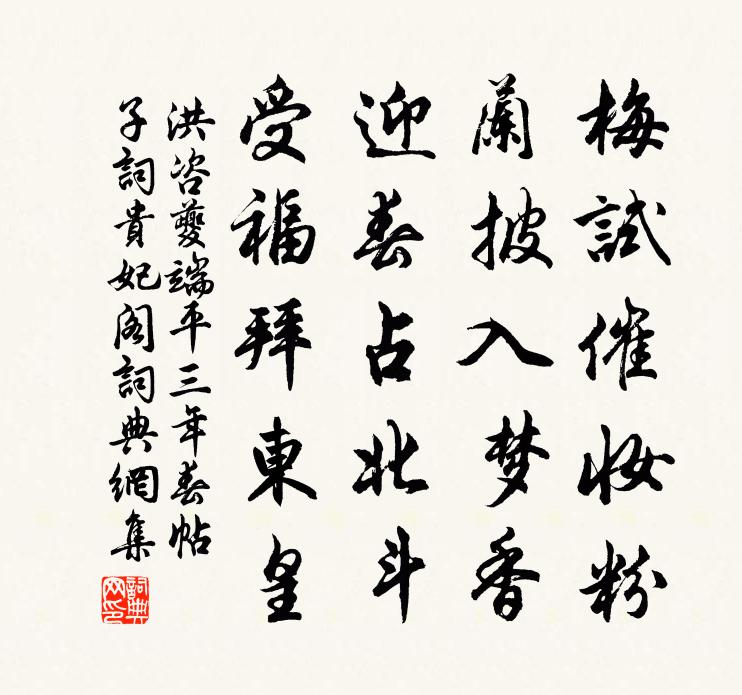 梅試催妝粉
蘭披入梦香
迎春占北斗
受福拜東皇
洪咨夔端平三年春帖
子詞貴妃閣詞典網集
詞典网印